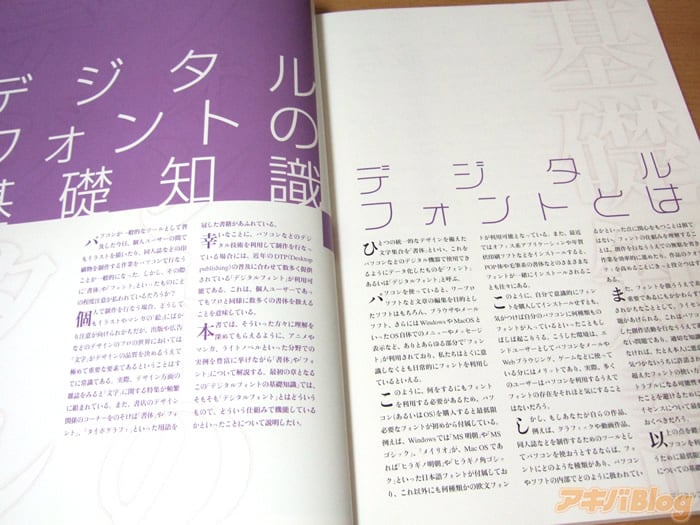 デジタル
フォントの
基礎知識
パソコンが一般的なツールとして普
及した今日、個人ユーザーの間で
もイラストを描いたり、同人誌などの印
刷物を制作する作業をパソコンで行なう
ことが一般的になった。しかし、その際
に「書体」や「フォント」といったものにど
の程度注意が払われているだろうか?
個人で創作を行なう場合、どうして
もイラストやマンガの「絵」にばか
り注意が向けられがちだが、出版や広告
などのデザインのプロの世界においては
「文字」がデザインの品質を決めるうえで
極めて重要な要素であるということはす
でに常識である。実際、デザイン方面の
雑誌をみると「文字」に関する特集が頻繁
に組まれている。また、書店のデザイン
関係のコーナーをのぞけば「書体」や「フォ
ント」、「タイポグラフィ」といった用語を
冠した書籍があふれている。
幸いなことに、パソコンなどのデジ
タル技術を利用して創作を行なっ
ている場合には、近年のDTP(Desktop
publishing)の普及に合わせて数多く提供
されている「デジタルフォント」が利用可
能である。これは、個人ユーザーであっ
てもプロと同様に多くの書体を扱える
ことを意味している。
本書では、そういった方々に理解を
深めてもらえるように、アニメや
マンガ、ライトノベルといった分野での
実例を豊富に挙げながら「書体」や「フォ
ント」について解説する。最初の章となる
この「デジタルフォントの基礎知識」では、
そもそも「デジタルフォント」とはどういう
もので、どういう仕組みで機能している
かといったことについて説明したい。
基礎
デジタル
フォントとは
ひとつの統一的なデザインを備えた
文字集合を「書体」といい、これを
パソコンなどのデジタル機器で使用でき
るようにデータ化したものを「フォント」、
あるいは「デジタルフォント」と呼ぶ。
パソコンを使っていると、ワープロソ
フトなど文章の編集を目的とした
ソフトはもちろん、ブラウザやメール
ソフト、さらにはWindowsやMacOSと
いったOS自体でのメニューやメッセージ
表示など、ありとあらゆる部分で「フォン
ト」が利用されており、私たちはとくに意
識しなくとも日常的にフォントを利用し
ているといえる。
このように、何をするにもフォント
を利用する必要があるため、パソ
コン(あるいはOS)を購入すると最低限
必要なフォントが初めから付属している。
例えば、Windowsでは「MS 明朝」や「MS
ゴシック」、「メイリオ」が、Mac OSであ
れば「ヒラギノ明朝」や「ヒラギノ角ゴシッ
ク」といった日本語フォントが付属してお
り、これ以外にも何種類かの欧文フォン
トが利用可能となっている。また、最近
ではオフィス系アプリケーションや年賀
状印刷ソフトなどをインストールすると、
POP体や毛筆系の書体などのさまざまな
フォントが一緒にインストールされるこ
とも往々にある。
このように、自分で意識的にフォン
トを購入してインストールせずとも、
気がつけば自分のパソコンに何種類もの
フォントが入っているといったこともし
ばしば起こりうる。こうした環境は、エ
ンドユーザーとしてパソコンをメールや
Webブラウジング、ゲームなどに使って
いる分にはメリットであり、実際、多く
のユーザーはパソコンを利用するうえで
フォントの存在をそれほど気にすること
はないだろう。
しかし、もしあなたが自らの作品、
例えば、グラフィックや動画作品、
同人誌などを制作するためのツールとし
てパソコンを使おうとするならば、フォ
ントにどのような種類があり、パソコン
やソフトの内部でどのように扱われてい
アキバBlog